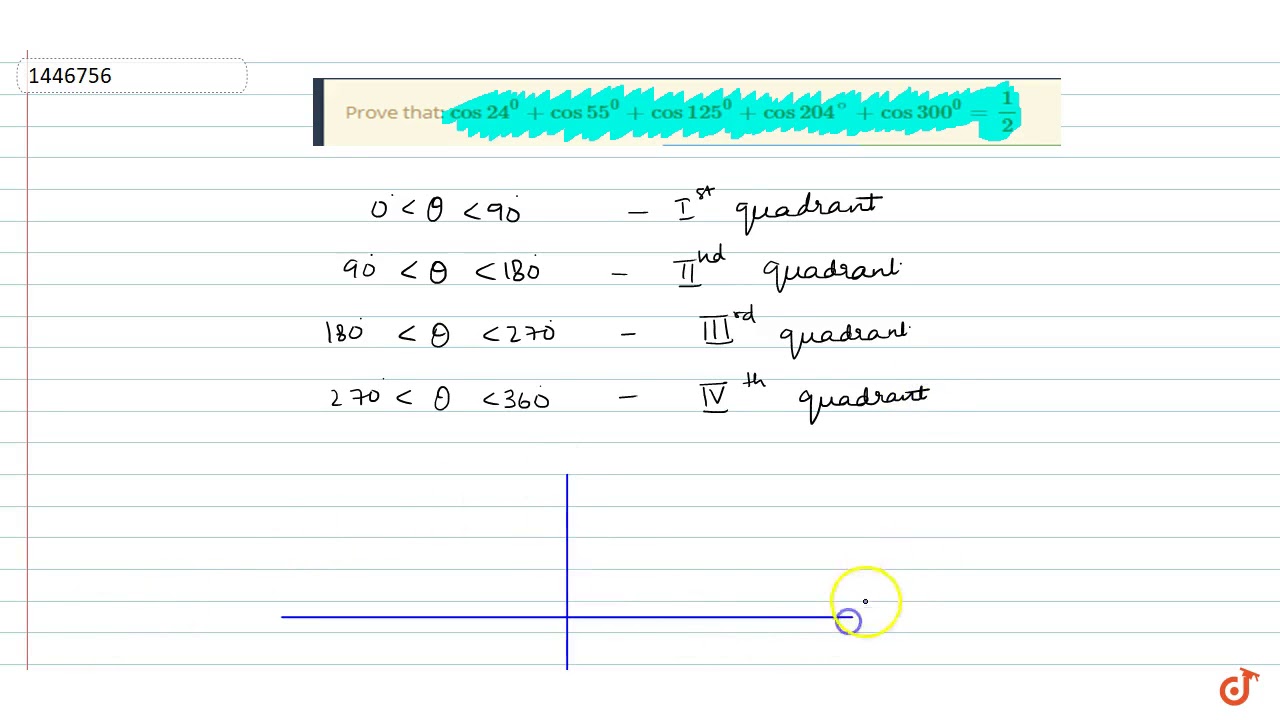 1446756
Prove that: cos 24⁰ + cos 55⁰ + cos 125⁰ + cos 204° + cos 300⁰ = 1/2
0° < θ < 90° – Ist quadrant
90° < θ < 180° – IInd quadrant
180° < θ < 270° – IIIrd quadrant
270° < θ < 360° – IVth quadrant